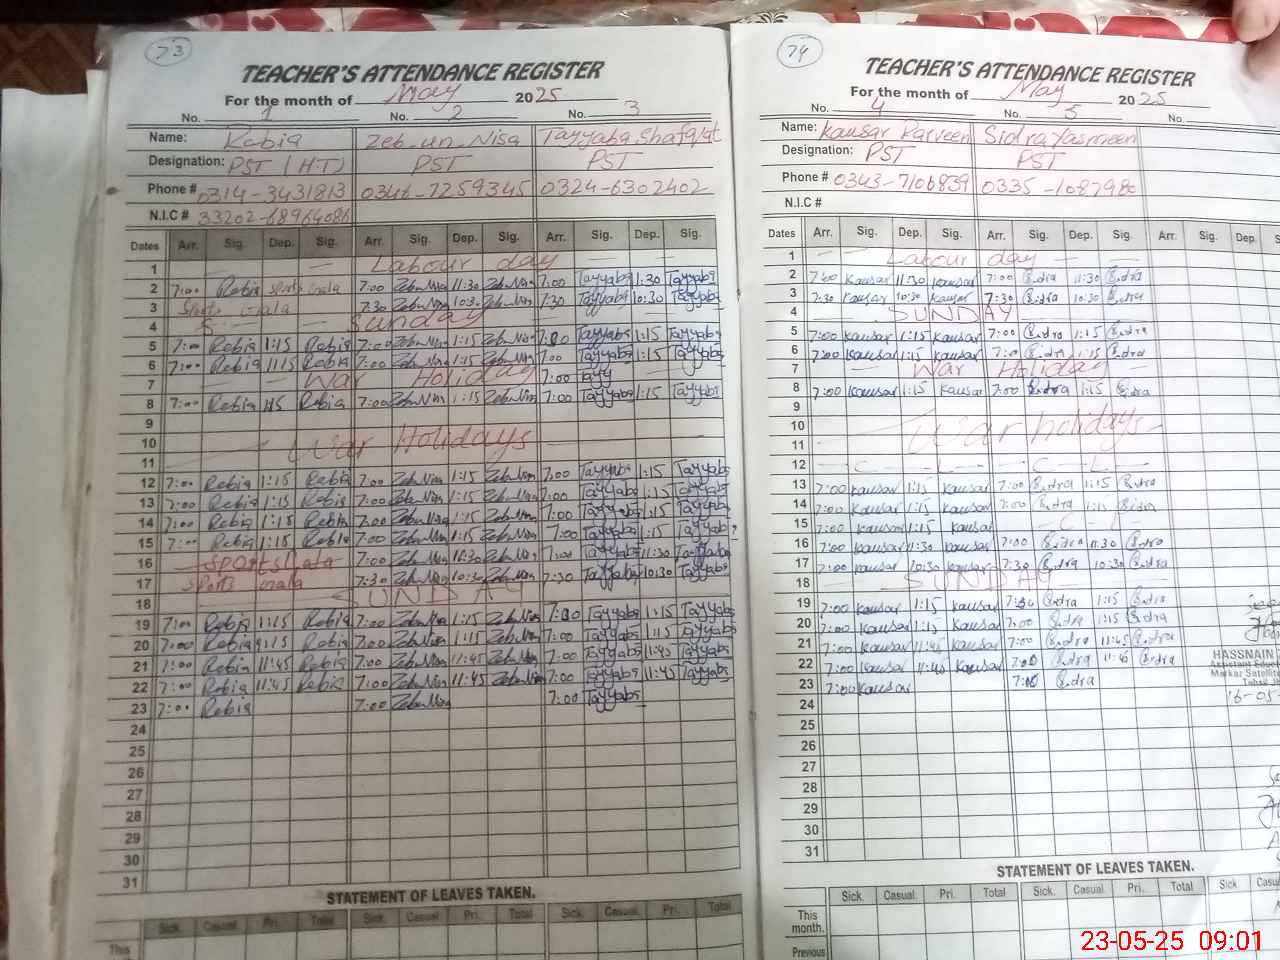 73
TEACHER'S ATTENDANCE REGISTER
For the month of May 2025
No. 1 No. 2 No. 3
Name: Rabia Zeb-un-Nisa Tayyaba Shafqat
Designation: PST (HT) PST PST
Phone # 0314-3431813 0346-7259345 0324-6302402
N.I.C # 33202-68964086
Dates Arr. Sig. Dep. Sig. Arr. Sig. Dep. Sig. Arr. Sig. Dep. Sig.
1 Labour day
2 7:00 Rabia sports mala 7:00 Zebun Nisa 11:30 Zebun Nisa 7:00 Tayyaba 1:30 Tayyaba
3 Sports mala 7:30 Zebun Nisa 10:30 Zebun Nisa 7:30 Tayyaba 10:30 Tayyaba
4 S Sunday
5 7:00 Rabia 1:15 Rabia 7:00 Zebun Nisa 1:15 Zebun Nisa 7:00 Tayyaba 1:15 Tayyaba
6 7:00 Rabia 1:15 Rabia 7:00 Zebun Nisa 1:15 Zebun Nisa 7:00 Tayyaba 1:15 Tayyaba
7 War Holiday 7:00 Tayy
8 7:00 Rabia 1:15 Rabia 7:00 Zebun Nisa 1:15 Zebun Nisa 7:00 Tayyaba 1:15 Tayyaba
9
10 War Holidays
11
12 7:00 Rabia 1:15 Rabia 7:00 Zebun Nisa 1:15 Zebun Nisa 7:00 Tayyaba 1:15 Tayyaba
13 7:00 Rabia 1:15 Rabia 7:00 Zebun Nisa 1:15 Zebun Nisa 7:00 Tayyaba 1:15 Tayyaba
14 7:00 Rabia 1:15 Rabia 7:00 Zebun Nisa 1:15 Zebun Nisa 7:00 Tayyaba 1:15 Tayyaba
15 7:00 Rabia 1:15 Rabia 7:00 Zebun Nisa 1:15 Zebun Nisa 7:00 Tayyaba 1:15 Tayyaba
16 Sports mala 7:00 Zebun Nisa 11:30 Zebun Nisa 7:00 Tayyaba 11:30 Tayyaba
17 Sports mala 7:30 Zebun Nisa 10:30 Zebun Nisa 7:30 Tayyaba 10:30 Tayyaba
18 SUNDAY
19 7:00 Rabia 1:15 Rabia 7:00 Zebun Nisa 1:15 Zebun Nisa 7:00 Tayyaba 1:15 Tayyaba
20 7:00 Rabia 1:15 Rabia 7:00 Zebun Nisa 1:15 Zebun Nisa 7:00 Tayyaba 1:15 Tayyaba
21 7:00 Rabia 11:45 Rabia 7:00 Zebun Nisa 11:45 Zebun Nisa 7:00 Tayyaba 11:45 Tayyaba
22 7:00 Rabia 11:45 Rabia 7:00 Zebun Nisa 11:45 Zebun Nisa 7:00 Tayyaba 11:45 Tayyaba
23 7:00 Rabia 7:00 Zebun Nisa 7:00 Tayyaba
24
25
26
27
28
29
30
31
STATEMENT OF LEAVES TAKEN.
Sick. Casual. Pri. Total Sick. Casual. Pri. Total Sick. Casual. Pri. Total
This
74
TEACHER'S ATTENDANCE REGISTER
For the month of May 2025
No. 4 No. 5 No.
Name: Kausar Parveen Sidra Yasmeen
Designation: PST PST
Phone # 0343-7106839 0335-1087980
N.I.C #
Dates Arr. Sig. Dep. Sig. Arr. Sig. Dep. Sig. Arr. Sig. Dep.
1 Labour day
2 7:00 Kausar 11:30 Kausar 7:00 Sidra 11:30 Sidra
3 7:30 Kausar 10:30 Kausar 7:30 Sidra 10:30 Sidra
4 SUNDAY
5 7:00 Kausar 1:15 Kausar 7:00 Sidra 1:15 Sidra
6 7:00 Kausar 1:15 Kausar 7:00 Sidra 1:15 Sidra
7 War Holiday
8 7:00 Kausar 1:15 Kausar 7:00 Sidra 1:15 Sidra
9
10 War holidays
11
12 C L C L
13 7:00 Kausar 1:15 Kausar 7:00 Sidra 1:15 Sidra
14 7:00 Kausar 1:15 Kausar 7:00 Sidra 1:15 Sidra
15 7:00 Kausar 1:15 Kausar C
16 7:00 Kausar 11:30 Kausar 7:00 Sidra 11:30 Sidra
17 7:00 Kausar 10:30 Kausar 7:30 Sidra 10:30 Sidra
18 SUNDAY
19 7:00 Kausar 1:15 Kausar 7:30 Sidra 1:15 Sidra
20 7:00 Kausar 1:15 Kausar 7:00 Sidra 1:15 Sidra
21 7:00 Kausar 11:45 Kausar 7:00 Sidra 11:45 Sidra
22 7:00 Kausar 11:45 Kausar 7:00 Sidra 11:45 Sidra
23 7:00 Kausar 7:10 Sidra
24
25
26
27
28
29
30
31
HASSNAIN
Assistant Educ
Markaz Satellite
16-05
STATEMENT OF LEAVES TAKEN.
Sick. Casual. Pri. Total Sick. Casual. Pri. Total Sick Casu
This month.
Previous
23-05-25 09:01